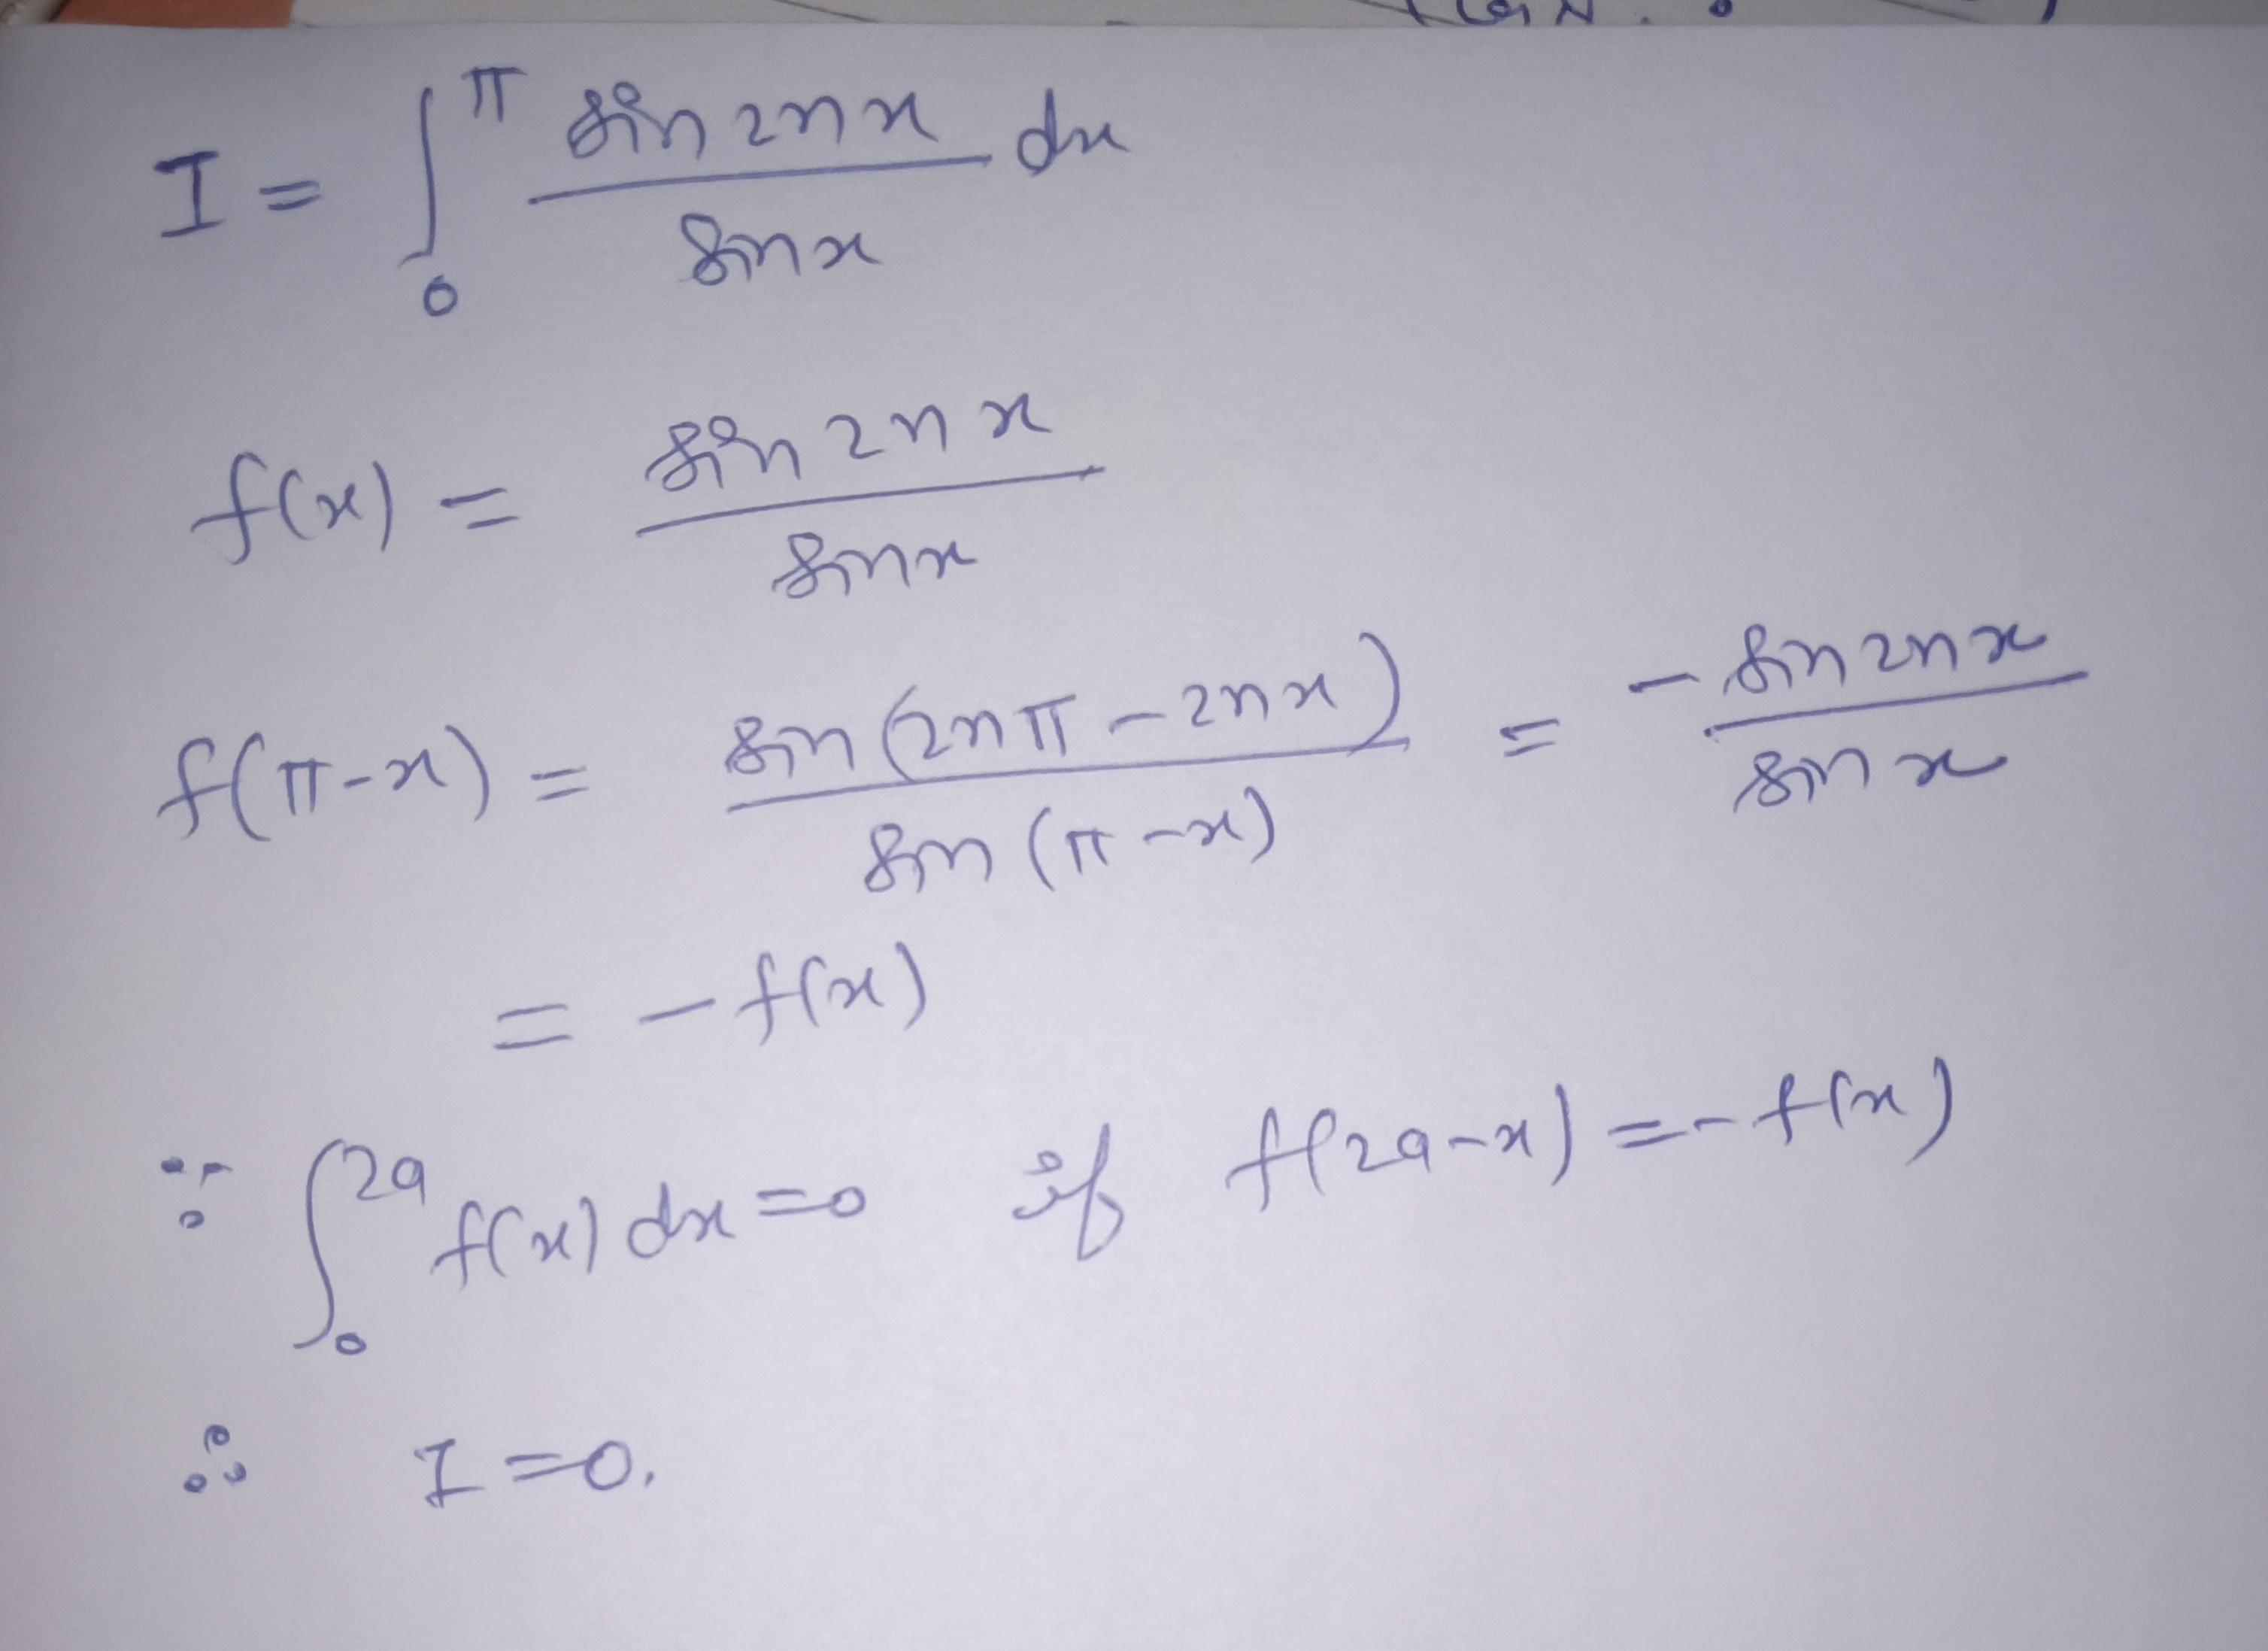 I = ∫₀^π sin2nx / sinx dx
f(x) = sin2nx / sinx
f(π-x) = sin(2nπ-2nx) / sin(π-x) = -sin2nx / sinx
= -f(x)
∵ ∫₀^2a f(x) dx = 0 if f(2a-x) = -f(x)
∴ I = 0.